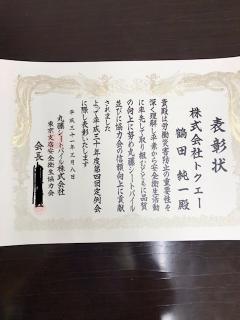 表彰状
株式会社トクエー
鶴田 純一 殿
貴殿は労働災害防止の重要性を
深く理解し平素から安全衛生活動
に率先して取り組むとともに品質
の向上に努め丸藤シートパイル
並びに協力会の信頼向上に貢献
されました
よって平成三十年度第四回定例会
に際し表彰いたします
平成三十一年三月八日
丸藤シートパイル株式会社
東京支店安全衛生協力会
会長